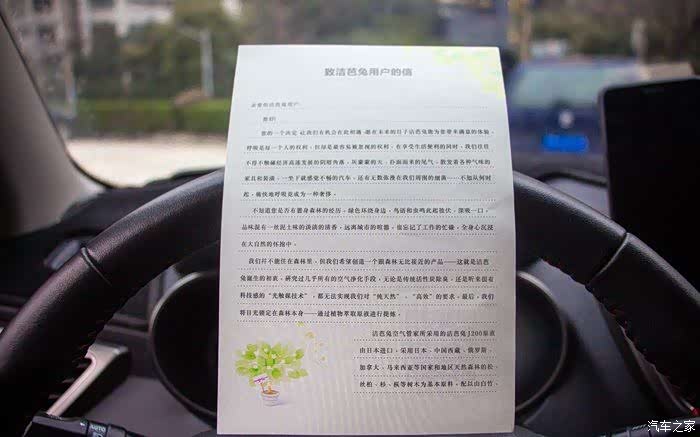 致洁芭兔用户的信
亲爱的洁芭兔用户:
您好!
您的一个决定 让我们有机会在此相遇 愿在未来的日子洁芭兔能为您带来满意的体验。
呼吸是每一个人的权利,但却是最容易被忽视的权利,在享受生活便利的同时,我们往往
不得不触碰经济高速发展的阴暗角落,灰蒙蒙的天,扑面而来的尾气,散发着各种气味的
家具和装潢,一坐下就感觉不畅的汽车,还有无数弥漫在我们周围的细菌……不知从何时
起,畅快地呼吸竟成为一种奢侈。
不知道您是否有置身森林的经历,绿色环绕身边,鸟语和虫鸣此起彼伏,深吸一口,
品味混有一丝泥土味的淡淡的清香,远离城市的喧嚣,也忘记了工作的忙碌,全身心沉浸
在大自然的怀抱中。
我们并不能住在森林里,但我们希望创造一个跟森林无比接近的产品——这就是洁芭
兔诞生的初衷,研究过几乎所有的空气净化手段,无论是传统活性炭除臭,还是听来很有
科技感的“光触媒技术”,都无法实现我们对“纯天然”、“高效”的要求。最后,我们
将目光锁定在森林本身——通过植物萃取原液进行提炼。
洁芭兔空气管家所采用的洁芭兔J200原液
由日本进口,采用日本、中国西藏、俄罗斯、
加拿大、马来西亚等国家和地区天然森林的松、
丝柏、杉、槟等树木为基本原料,配以山白竹
汽车之家